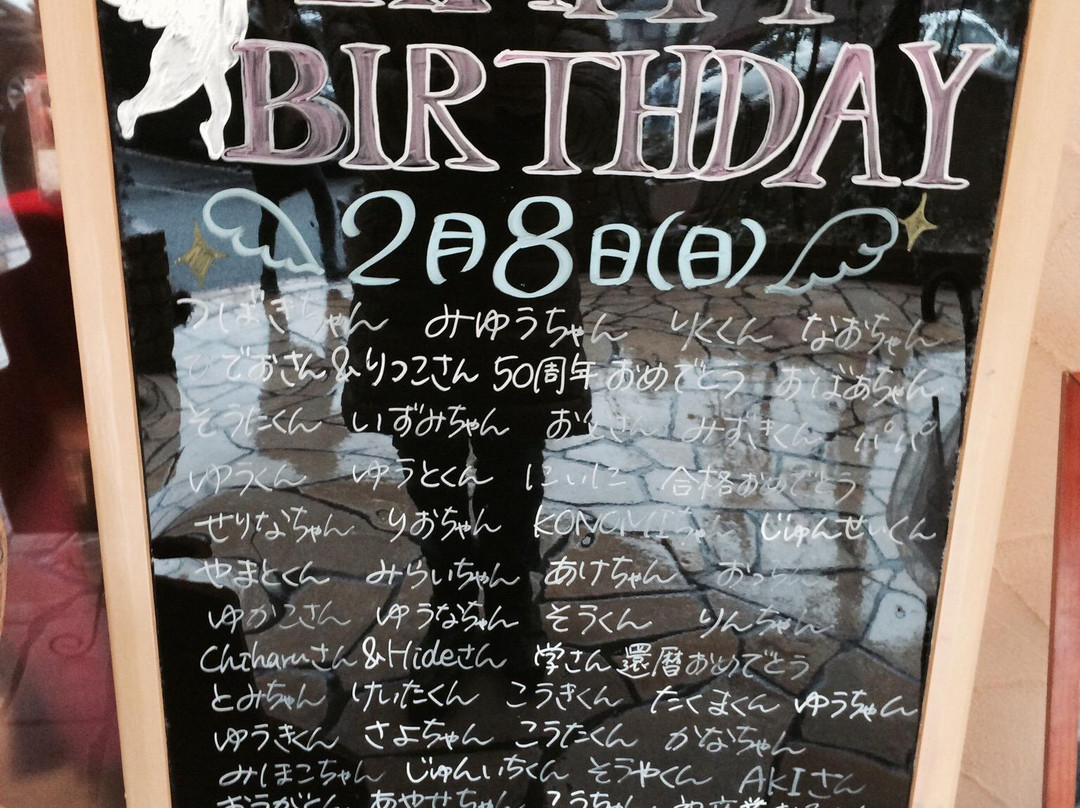 HAPPY
BIRTHDAY
2月8日(日)
つばきちゃん みゆうちゃん りくくん なおちゃん
ひでおさん&りつこさん 50周年おめでとう おばあちゃん
そうたくん いずみちゃん お父さん みずきくん パパ
ゆうくん ゆうとくん にいに 合格おめでとう
せりなちゃん りおちゃん KONOMIちゃん じゅんせいくん
やまとくん みらいちゃん あけちゃん おっちゃん
ゆかこさん ゆうなちゃん そうくん りんちゃん
Chiharuさん&Hideさん 学さん 還暦おめでとう
とみちゃん けいたくん こうきくん たくまくん ゆうちゃん
ゆうきくん さよちゃん こうたくん かなちゃん
みほこちゃん じゅんいちくん そうやくん AKIさん
あやせちゃん こうちゃん